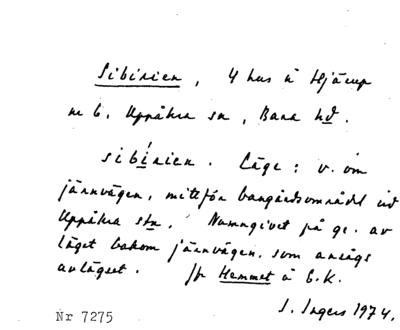 Sibirien, 4 hus å Hjärup
nr 6, Uppåkra sn, Bara hd.
sibírien. Läge: v. om
järnvägen, mittför bangårdsområdet vid
Uppåkra stn. Namngivet på gr. av
läget bakom järnvägen, som ansågs
avlägset. Jfr Hemmet å 6.K.
I. Ingers 1974.
Nr 7275